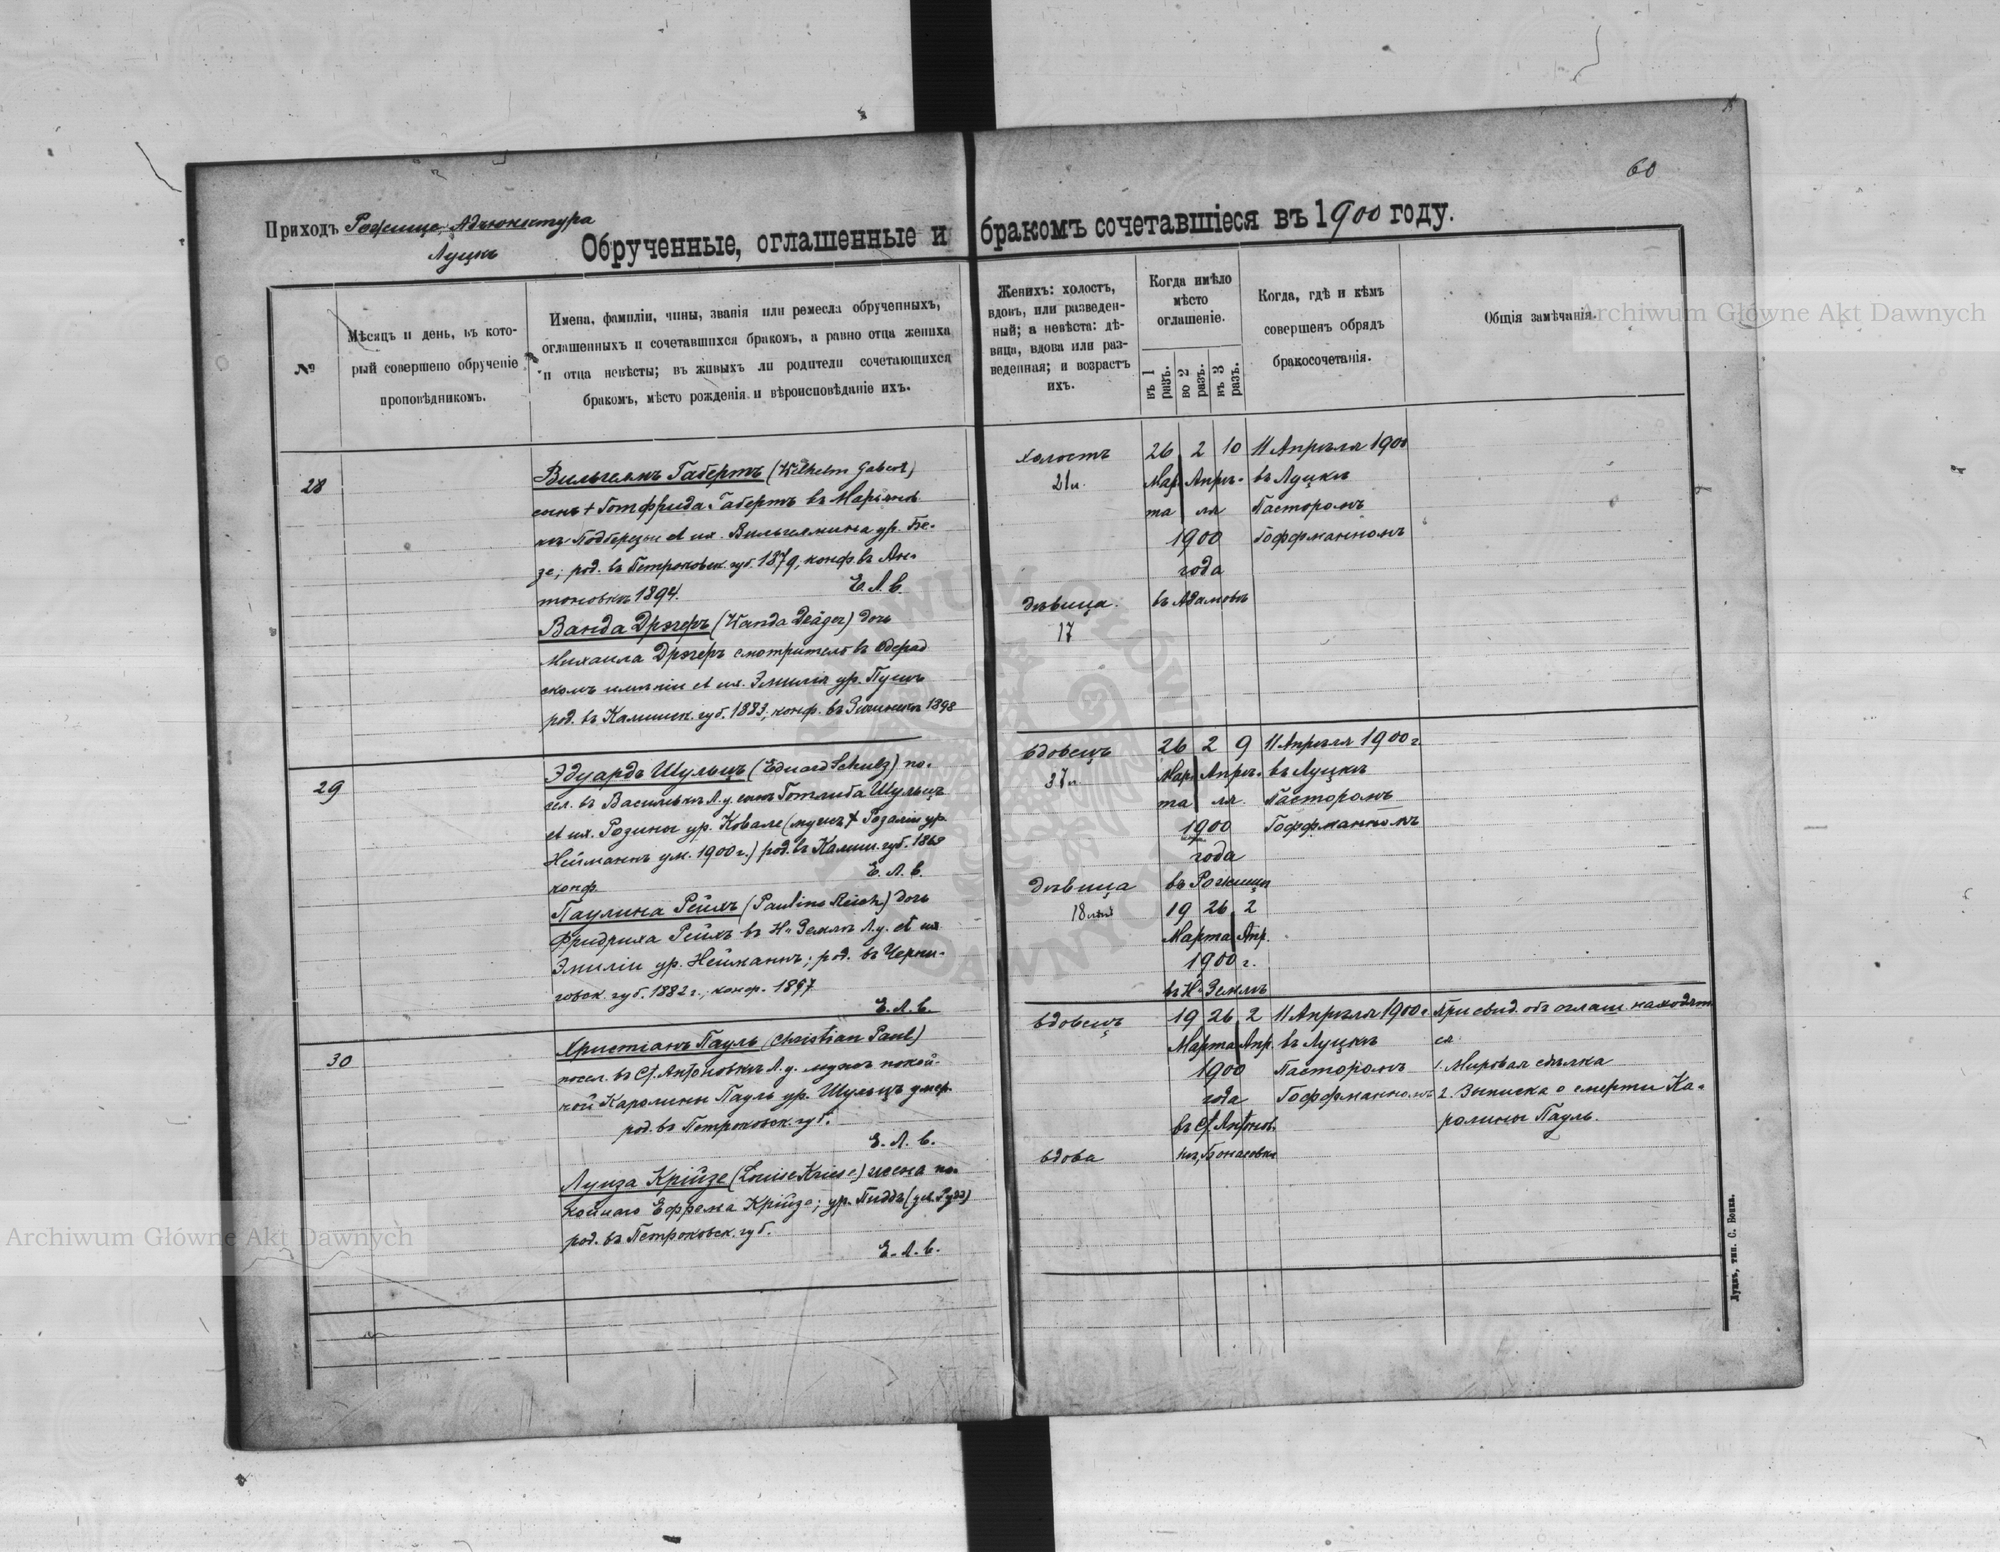 60
Приходъ Рожище, Адъюнктура
Луцкъ
Обрученные, оглашенные и бракомъ сочетавшіеся въ 1900 году.
№
Мѣсяцъ и день, въ кото-
рый совершено обрученіе
проповѣдникомъ.
Имена, фамиліи, чины, званія или ремесла обрученныхъ,
оглашенныхъ и сочетавшихся бракомъ, а равно отца жениха
и отца невѣсты; въ живыхъ ли родители сочетающихся
бракомъ, мѣсто рожденія и вѣроисповѣданіе ихъ.
Женихъ: холостъ,
вдовъ, или разведен-
ный; а невѣста: дѣ-
вица, вдова или раз-
веденная; и возрастъ
ихъ.
Когда имѣло
мѣсто
оглашеніе.
въ 1 разъ.
во 2 разъ.
въ 3 разъ.
Когда, гдѣ и кѣмъ
совершенъ обрядъ
бракосочетанія.
Общія замѣчанія.
28
Вильгелмъ Габертъ (Wilhelm Gabert)
сынъ + Готфрида Габертъ въ Марьянов
кѣ Подберезье et их. Вильгелмина ур. Бе-
зе; род. въ Петроковск. губ. 1879, конф. въ Ан-
тоновкѣ 1894.
Е. Л. в.
Ванда Дрэгеръ (Wanda Dräger) дочь
Михаила Дрэгеръ смотритель въ Одерад
скомъ имѣніи et их. Эмилія ур. Пушъ
род. въ Калишск. губ. 1883; конф. въ 1898
холостъ
21 л.
дѣвица.
17
26 2 10
Мар- Апрѣ-
та ля
1900
года
въ Адамовкѣ
11 Апрѣля 1900
въ Луцкѣ
Пасторомъ
Гоффманномъ
29
Эдуардъ Шульцъ (Eduard Schulz) по-
сел. въ Василькѣ Л. у. сынъ Готлиба Шульцъ
et их. Розины ур. Ковалс (мужъ + Розаліи ур.
Нейманнъ ум. 1900 г.) род. въ Калиш. губ. 1863
конф.
Е. Л. в.
Паулина Рейхъ (Pauline Reich) дочь
Фридриха Рейхъ въ Нѣ Землѣ Л. у. et их
Эмиліи ур. Нейманнъ; род. въ Черни-
говск. губ. 1882 г., конф. 1897
Е. Л. в.
вдовецъ
37 л
дѣвица
18 лѣтъ
26 2 9
Мар- Апрѣ-
та ля.
1900
года
въ Рожищѣ
19 26 2
Марта Апр.
1900 г.
въ Нѣ Землѣ
11 Апрѣля 1900 г.
въ Луцкѣ
Пасторомъ
Гоффманномъ
30
Христіанъ Пауль (Christian Paul)
посел. въ Ст. Антоновкѣ Л. у. мужъ покой-
ной Каролины Пауль ур. Шульцъ умер.
род. въ Петроковск. губ.
Е. Л. в.
Луиза Крійзе (Louise Kriese) жена по-
койнаго Ефрема Крійзе; ур. Пиддъ
род. въ Петроковск. губ.
Е. Л. в.
вдовецъ
вдова
19 26 2
Марта Апр.
1900
года
въ Ст. Антонов.
11 Апрѣля 1900 г.
въ Луцкѣ
Пасторомъ
Гоффманномъ
При свид. объ оглаш. находят
ся
1. Мировая сдѣлка
2. Выписка о смерти Ка-
ролины Пауль.
Луцкъ, тип. С. Бокка.
Archiwum Główne Akt Dawnych
Archiwum Główne Akt Dawnych
ARCHIWUM GŁÓWNE AKT DAWNYCH